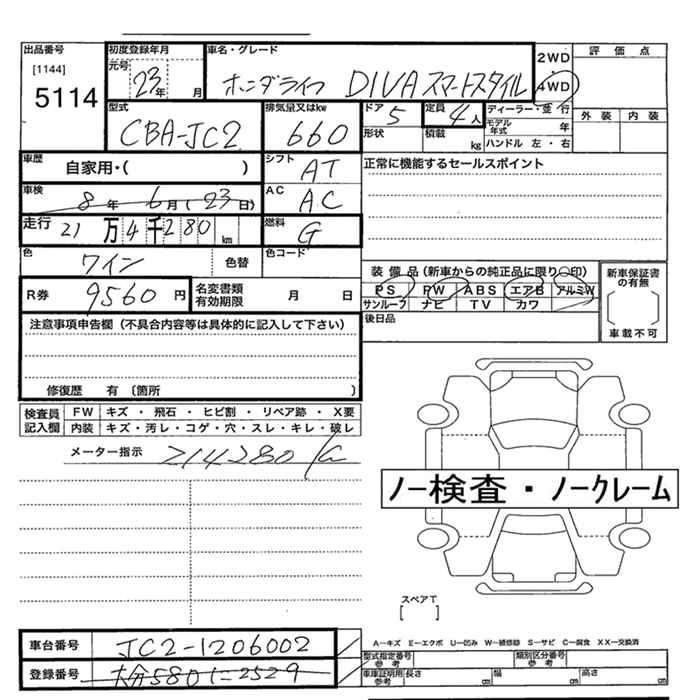 出品番号 初度登録年月 車名・グレード 2WD 評価点
[1144] 元号 23年 月 ホンダライフ DIVAスマートスタイル 4WD
5114
型式 排気量又はkw ドア 5 定員 4人 ディーラー・並行 外装 内装
CBA-JC2 660 形状 積載 kg モデル年式 年
ハンドル 左・右
車歴 自家用・( ) シフト AT 正常に機能するセールスポイント
車検 8年 6月(23日) AC AC
走行 21万4千280km 燃料 G
色 ワイン 色替 色コード
装備品(新車からの純正品に限り○印) 新車保証書の有無
R券 9560円 名変書類有効期限 月 日
PS PW ABS エアB アルミW
サンルーフ ナビ TV カワ
[ ]
車載不可
後日品
注意事項申告欄(不具合内容等は具体的に記入して下さい)
修復歴 有 (箇所 )
検査員記入欄 FW キズ・飛石・ヒビ割・リペア跡・X要
内装 キズ・汚レ・コゲ・穴・スレ・キレ・破レ
メーター指示 214280
ノー検査・ノークレーム
スペアT
[ ]
A-キズ E-エクボ U-凹み W-補修跡 S-サビ C-腐食 XX-交換済
車台番号 JC2-1206002
型式指定番号参考 類別区分番号参考
登録番号 大分580に2529
車庫証明用参考 長さ cm 幅 cm 高さ cm